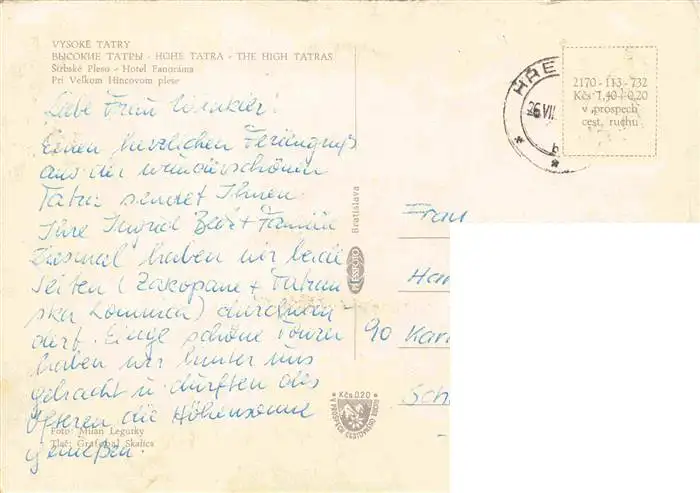 VYSOKÉ TATRY
ВЫСОКИЕ ТАТРЫ - HOHE TATRA - THE HIGH TATRAS
Štrbské Pleso - Hotel Panoráma
Pri Veľkom Hincovom plese
Liebe Frau Winkler!
Einen herzlichen Feriengruß
aus der wunderschönen
Tatra sendet Ihnen
Ihre Ingrid + Familie
Diesmal haben wir beide
Seiten (Zakopane + Tatran
ska Lomnica) durchwan-
dert. Einige schöne Touren
haben wir hinter uns
gebracht u. durften des
Öfteren die Höhensonne
genießen.
Foto: Milan Legutky
Tlač: Grafobal Skalica
Bratislava
PRESSFOTO
Kčs 0,20
HŘE
26.VII.
b
2170 - 113 - 732
Kčs 1,40+0,20
v „prospech
cest. ruchu
Frau
90 Karl